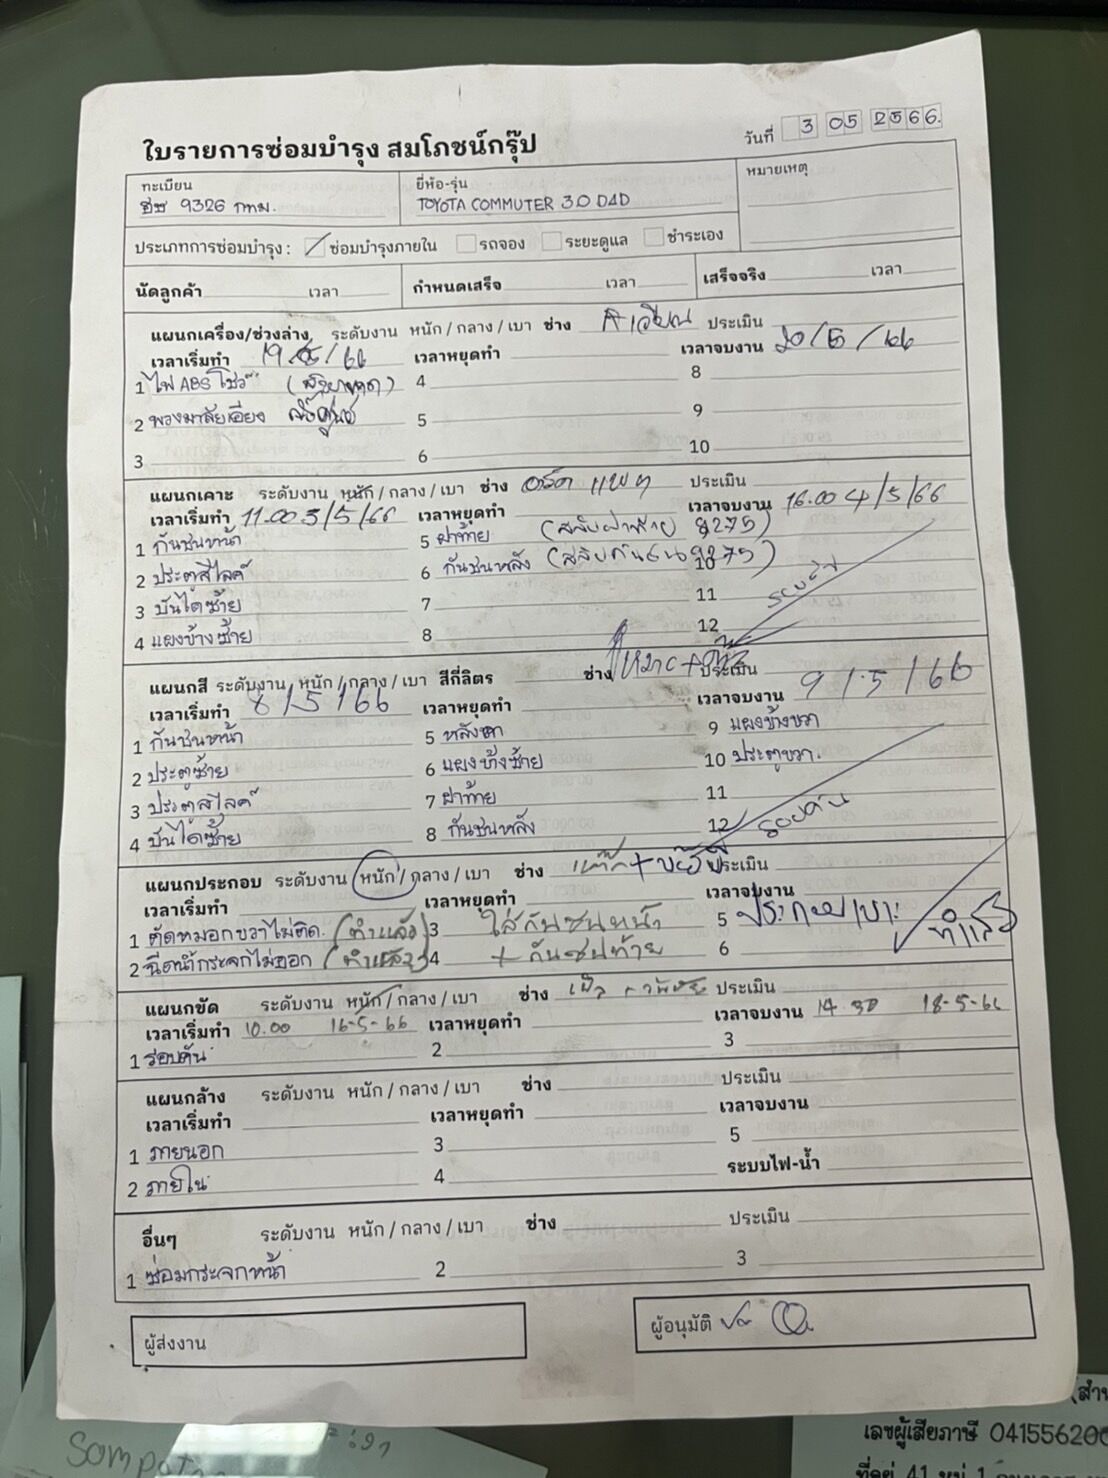 ใบรายการซ่อมบำรุง สมโภชน์กรุ๊ป
วันที่ 3 05 2566
ทะเบียน
ฮช 9326 กทม.
ยี่ห้อ-รุ่น
TOYOTA COMMUTER 3.0 D4D
หมายเหตุ
ประเภทการซ่อมบำรุง : ซ่อมบำรุงภายใน รถจอง ระยะดูแล ชำระเอง
นัดลูกค้า เวลา กำหนดเสร็จ เวลา เสร็จจริง เวลา
แผนกเครื่อง/ช่วงล่าง ระดับงาน หนัก / กลาง / เบา ช่าง ประเมิน
เวลาเริ่มทำ 19/5/66 เวลาหยุดทำ เวลาจบงาน 20/5/66
1 ไฟ ABS โชว์ 4 8
2 พวงมาลัยเอียง ตั้งศูนย์ 5 9
3 6 10
แผนกเคาะ ระดับงาน หนัก / กลาง / เบา ช่าง ประเมิน
เวลาเริ่มทำ 11.00 3/5/66 เวลาหยุดทำ เวลาจบงาน 16.00 4/5/66
1 กันชนหน้า 5 ฝาท้าย (สลับฝาท้าย 9275)
2 ประตูสไลด์ 6 กันชนหลัง (สลับกันชน 9275) 10
3 บันไดซ้าย 7 11
4 แผงข้างซ้าย 8 12
รอบคัน
แผนกสี ระดับงาน หนัก / กลาง / เบา สีกี่ลิตร ช่าง ประเมิน
เวลาเริ่มทำ 8/5/66 เวลาหยุดทำ เวลาจบงาน 9/5/66
1 กันชนหน้า 5 หลังคา 9 แผงข้างขวา
2 ประตูซ้าย 6 แผงข้างซ้าย 10 ประตูขวา.
3 ประตูสไลด์ 7 ฝาท้าย 11
4 บันไดซ้าย 8 กันชนหลัง 12 รอบคัน
แผนกประกอบ ระดับงาน หนัก / กลาง / เบา ช่าง ประเมิน
เวลาเริ่มทำ เวลาหยุดทำ เวลาจบงาน
1 ตัดหมอกขวาไม่ติด. (ทำแล้ว) 3 ใส่กันชนหน้า 5 ประกอบเบาะ ทำแล้ว
2 ฉีดน้ำกระจกไม่ออก (ทำแล้ว) 4 + กันชนท้าย 6
แผนกขัด ระดับงาน หนัก / กลาง / เบา ช่าง ประเมิน
เวลาเริ่มทำ 10.00 16-5-66 เวลาหยุดทำ เวลาจบงาน 14.30 18-5-66
1 รอบคัน 2 3
แผนกล้าง ระดับงาน หนัก / กลาง / เบา ช่าง ประเมิน
เวลาเริ่มทำ เวลาหยุดทำ เวลาจบงาน
1 ภายนอก 3 5
2 ภายใน 4 ระบบไฟ-น้ำ
อื่นๆ ระดับงาน หนัก / กลาง / เบา ช่าง ประเมิน
1 ซ่อมกระจกหน้า 2 3
ผู้ส่งงาน
ผู้อนุมัติ
เลขผู้เสียภาษี 04155620